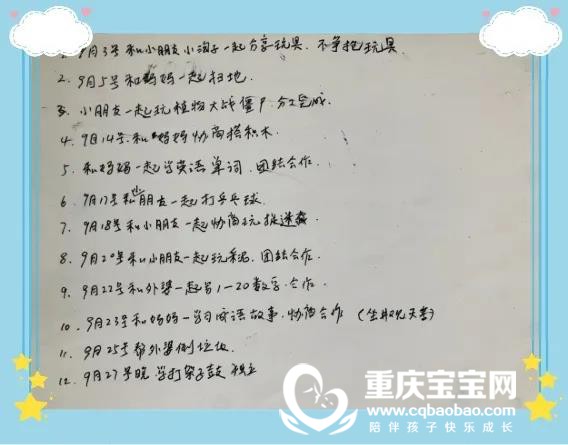 1. 9月3号和小朋友小淘子一起分享玩具、不争抢玩具
2. 9月5号和妈妈一起扫地.
3. 小朋友一起玩植物大战僵尸.分工完成.
4. 9月14号.和妈妈协商搭积木.
5. 和妈妈一起学英语单词.团结合作.
6. 9月17号和朋友一起打乒乓球.
7. 9月18号和小朋友一起协商玩捉迷藏
8. 9月20号和小朋友一起玩泥.团结合作.
9. 9月22号和外婆一起写1-20数字.合作.
10. 9月23号和妈妈一学习成语故事.协商合作 (坐井观天等)
11. 9月25号帮外婆倒垃圾
12. 9月27号晚 学打架子鼓 独立
重庆宝宝网
www.cqbaobao.com
陪伴孩子快乐成长